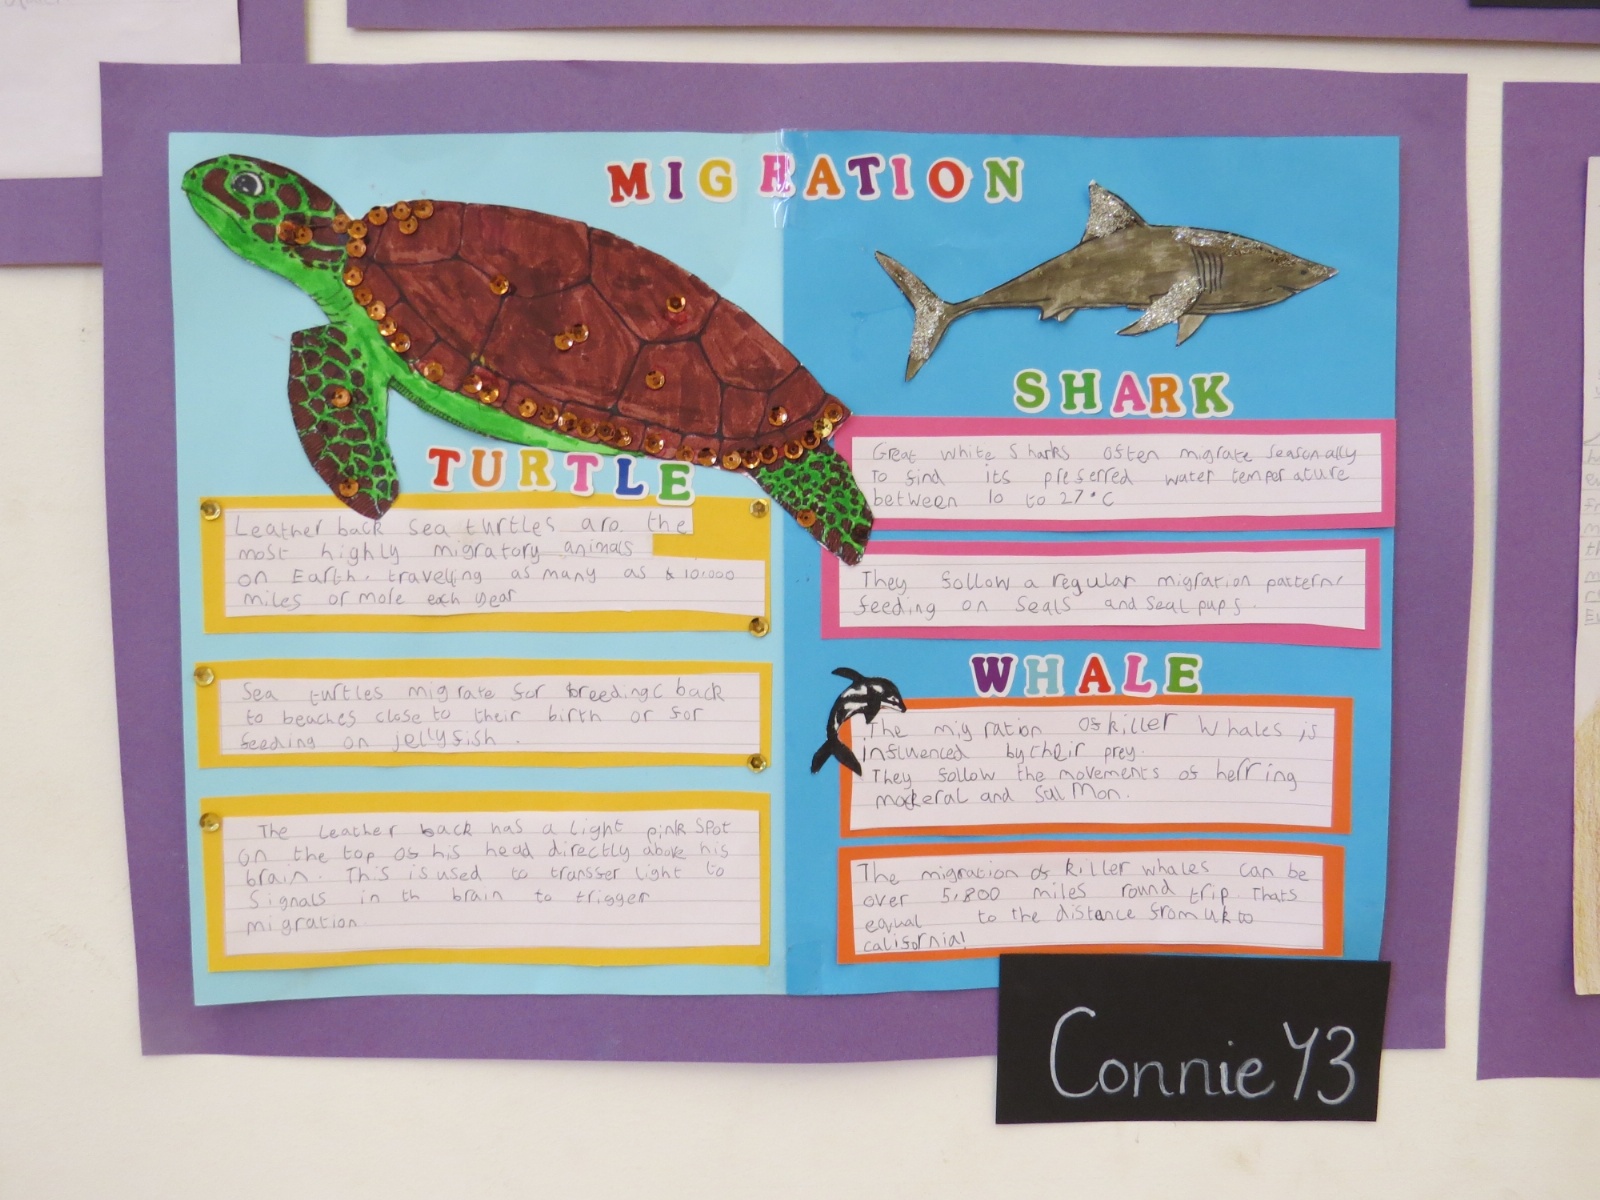 MIGRATION
TURTLE
Leather back sea turtles are the
most highly migratory animals
on Earth. travelling as many as 10,000
miles or more each year
Sea turtles migrate for breeding back
to beaches close to their birth or for
feeding on jellyfish.
The Leather back has a light pink spot
on the top of his head directly above his
brain. This is used to transfer light to
signals in th brain to trigger
migration.
SHARK
Great white Sharks often migrate seasonally
To find its preferred water temperature
between 10 to 27°C
They follow a regular migration pattern
feeding on Seals and seal pups.
WHALE
The migration of killer whales is
influenced by their prey.
They follow the movements of herring
mackeral and salmon.
The migration of killer whales can be
over 5,800 miles round trip. Thats
equal to the distance from uk to
california!
Connie Y3